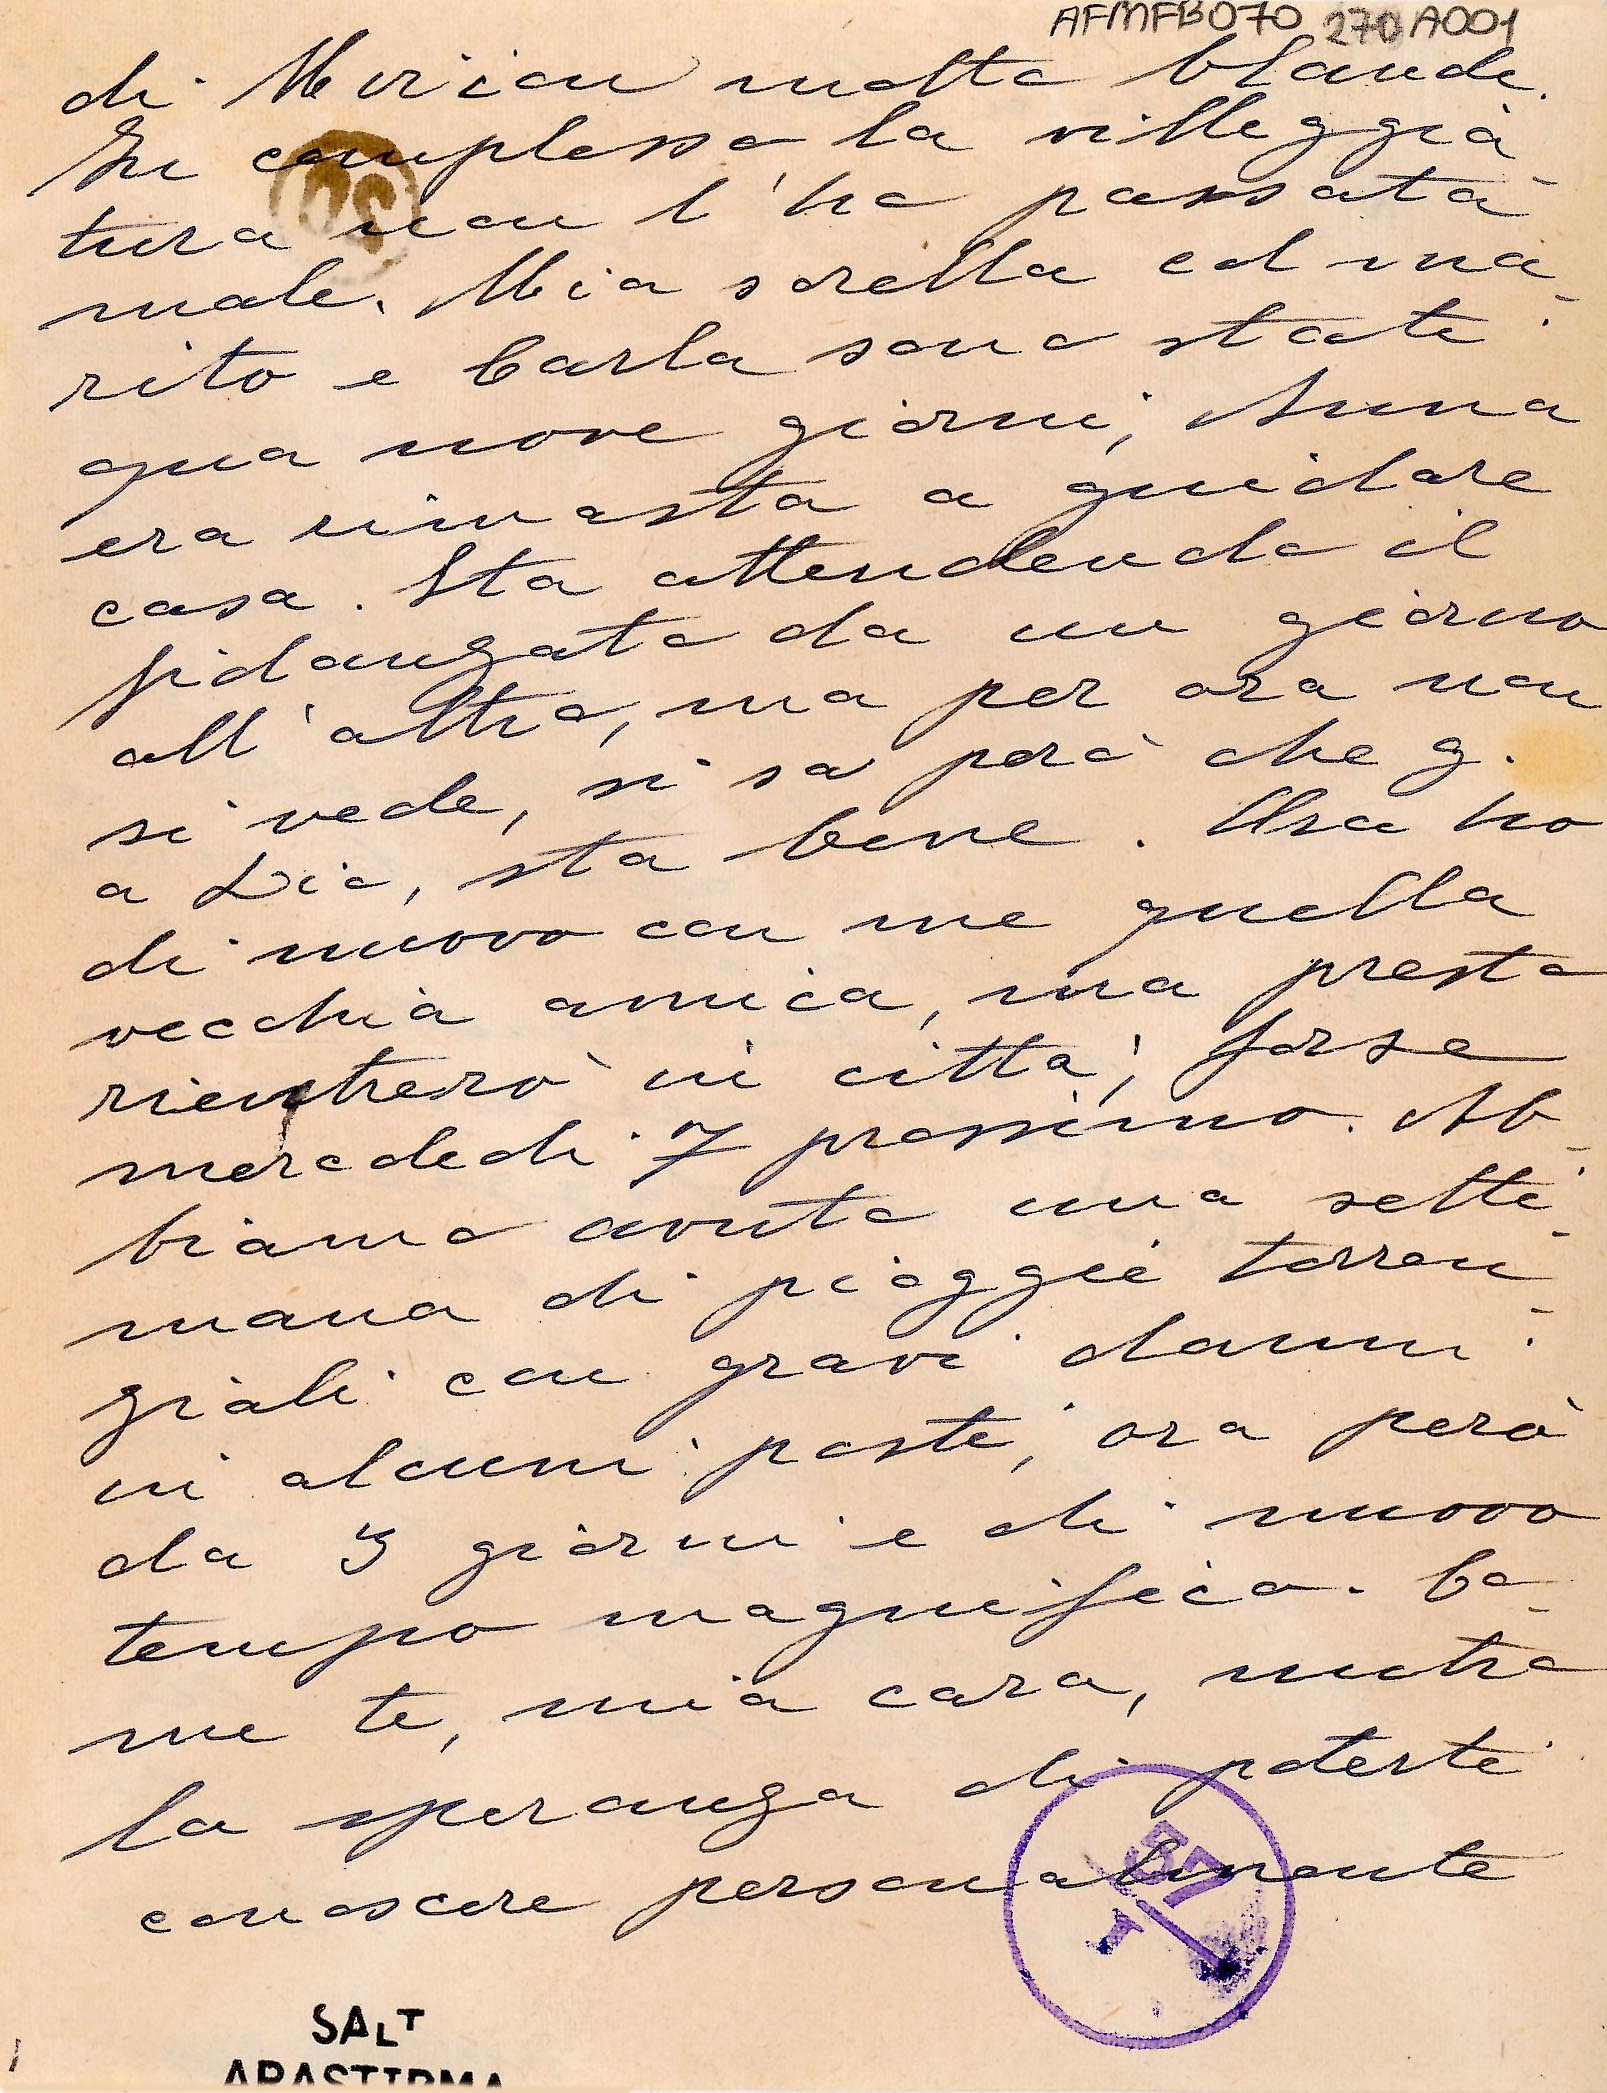 AFMFB070 270 A001
di Miriam molto blandi.
In complesso la villeggia
tura non l'ha passata
male. Mia sorella col ma-
rito e Carla sono stati
qua nove giorni, Anna
era rimasta a guidare
casa. Sta attendendo il
fidanzato da un giorno
all'altro, ma per ora non
si vede, si sa però che g.
a Dio, sta bene. Ora ho
di nuovo con me quella
vecchia amica, ma presto
rientrerò in città, forse
mercoledi 7 prossimo. Ab-
biamo avuto una setti-
mana di pioggie torren-
ziali con gravi danni
in alcuni posti, ora però
da 3 giorni e di nuovo
tempo magnifico. Co-
me te, mia cara, nutro
la speranza di poterti
conoscere personalmente
57
SALT
ARAŞTIRMA